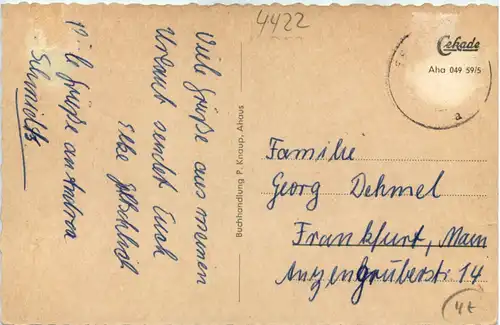 4422
Viele Grüße aus meinen
Urlaub sendet Euch
Elke
Viele Grüße an Andrea
Schmidts.
Buchhandlung P. Knaup, Ahaus
Cekade
Aha 049 59/5
a
Familie
Georg Dehmel
Frankfurt, Main
Anzengruberstr. 14